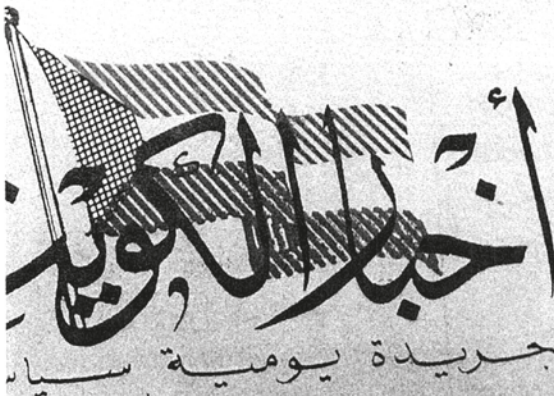 أخبار الكويت
جريدة يومية سياس